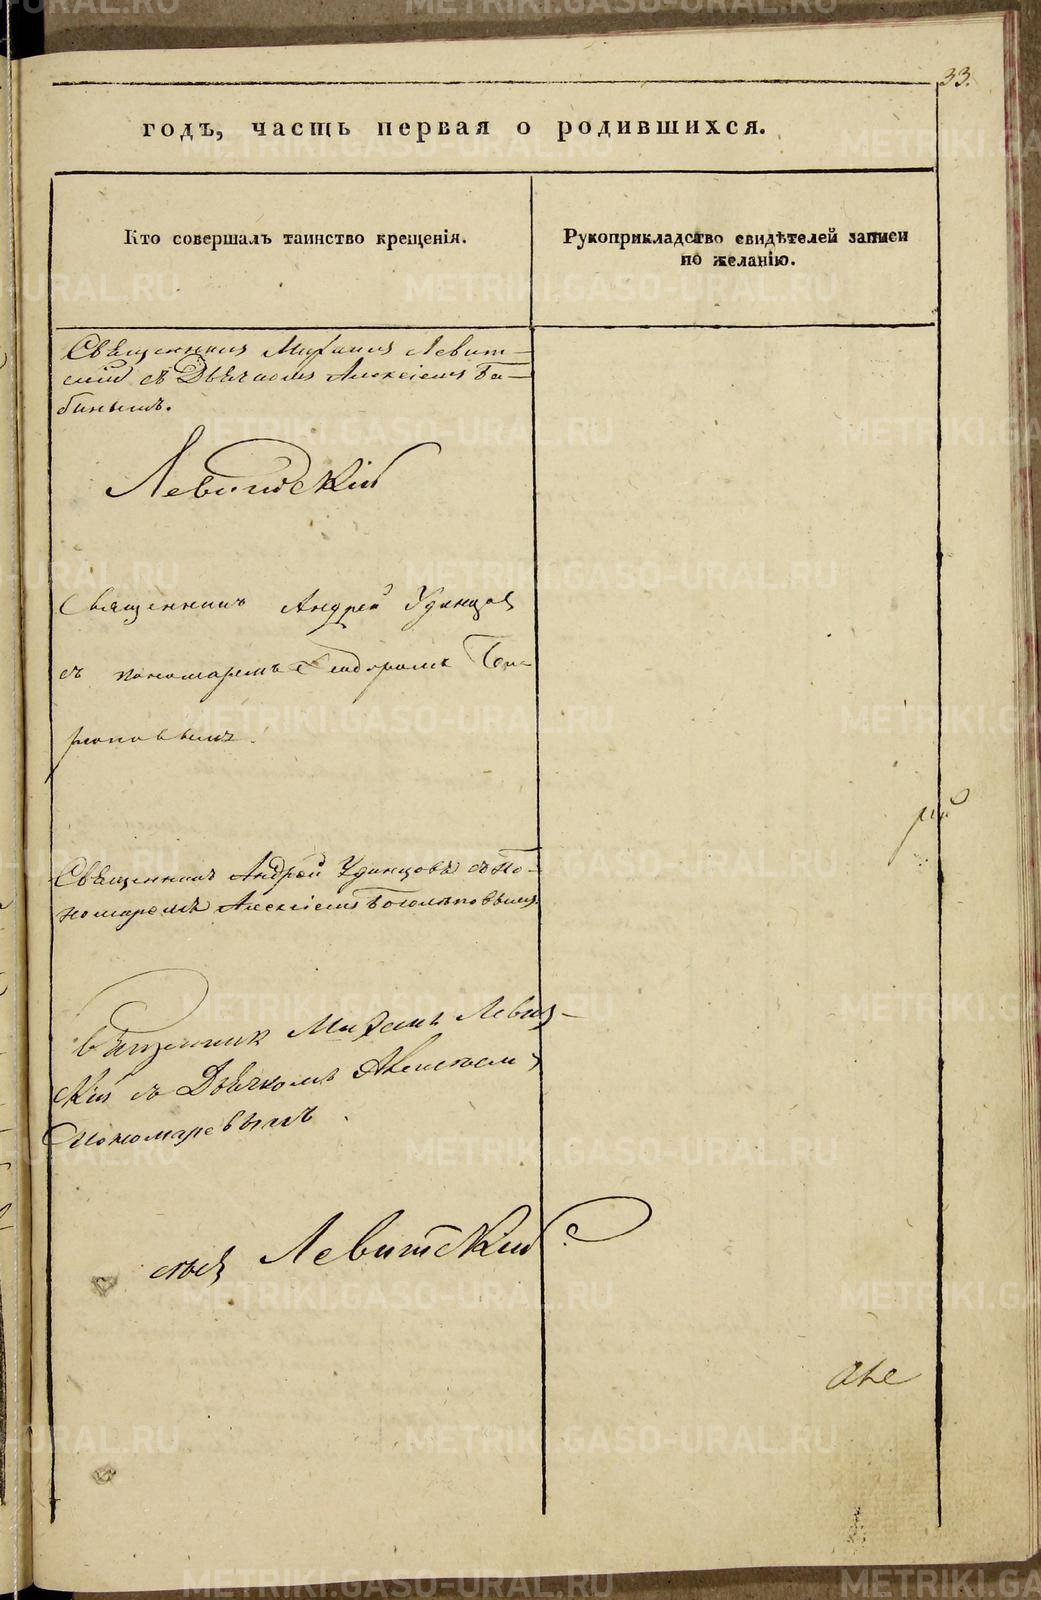 33.
годъ, часть первая о родившихся.
Кто совершалъ таинство крещенія.
Рукоприкладство свидѣтелей записи
по желанію.
Священникъ Михаилъ Левит-
скій съ Дьячкомъ Алексіемъ Ба-
бинымъ.
Левитскій
Священникъ Андрей Удинцов
съ пономаремъ Феодоромъ
Священникъ Андрей Удинцовъ съ По-
номаремъ Алексіемъ Боголѣповымъ
Священник Михаилъ Левиц-
кій съ Дьячкомъ
Пономаревымъ
Левитскій
METRIKI.GASO-URAL.RU